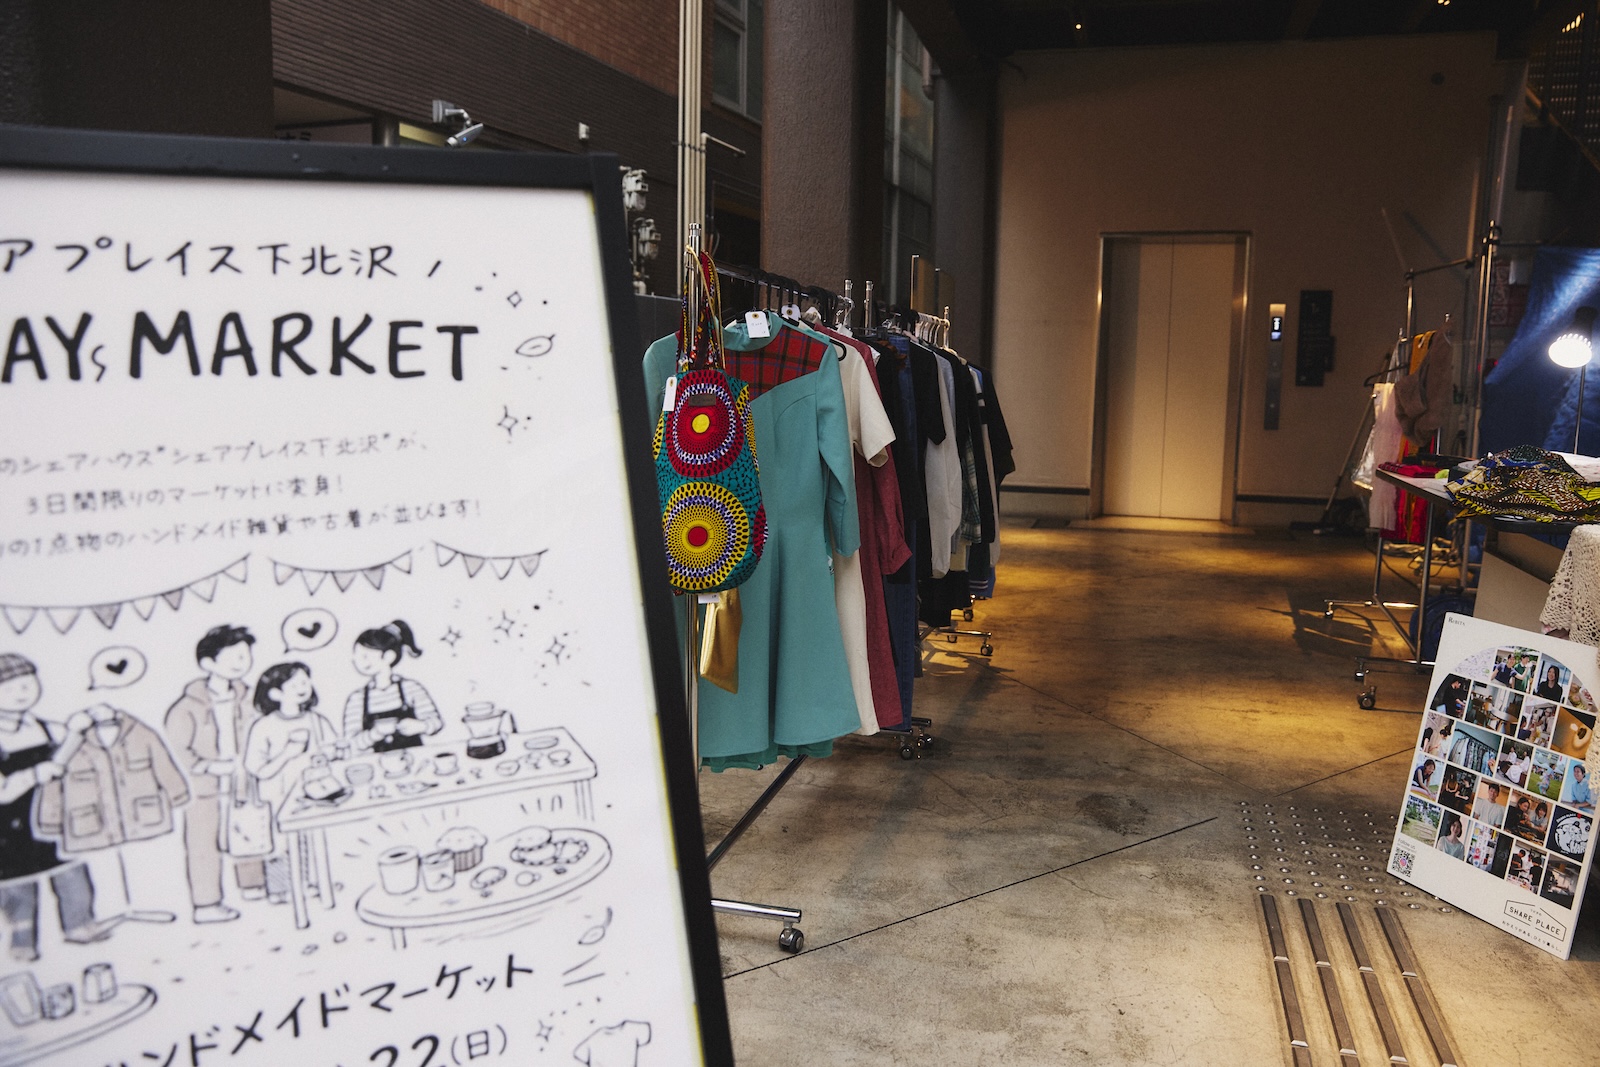 アプレイス下北沢
AYS MARKET
のシェアハウス"シェアプレイス下北沢"が、
3日間限りのマーケットに変身!
の1点物のハンドメイド雑貨や古着が並びます!
ンドメイドマーケット
22(日)
SHARE PLACE